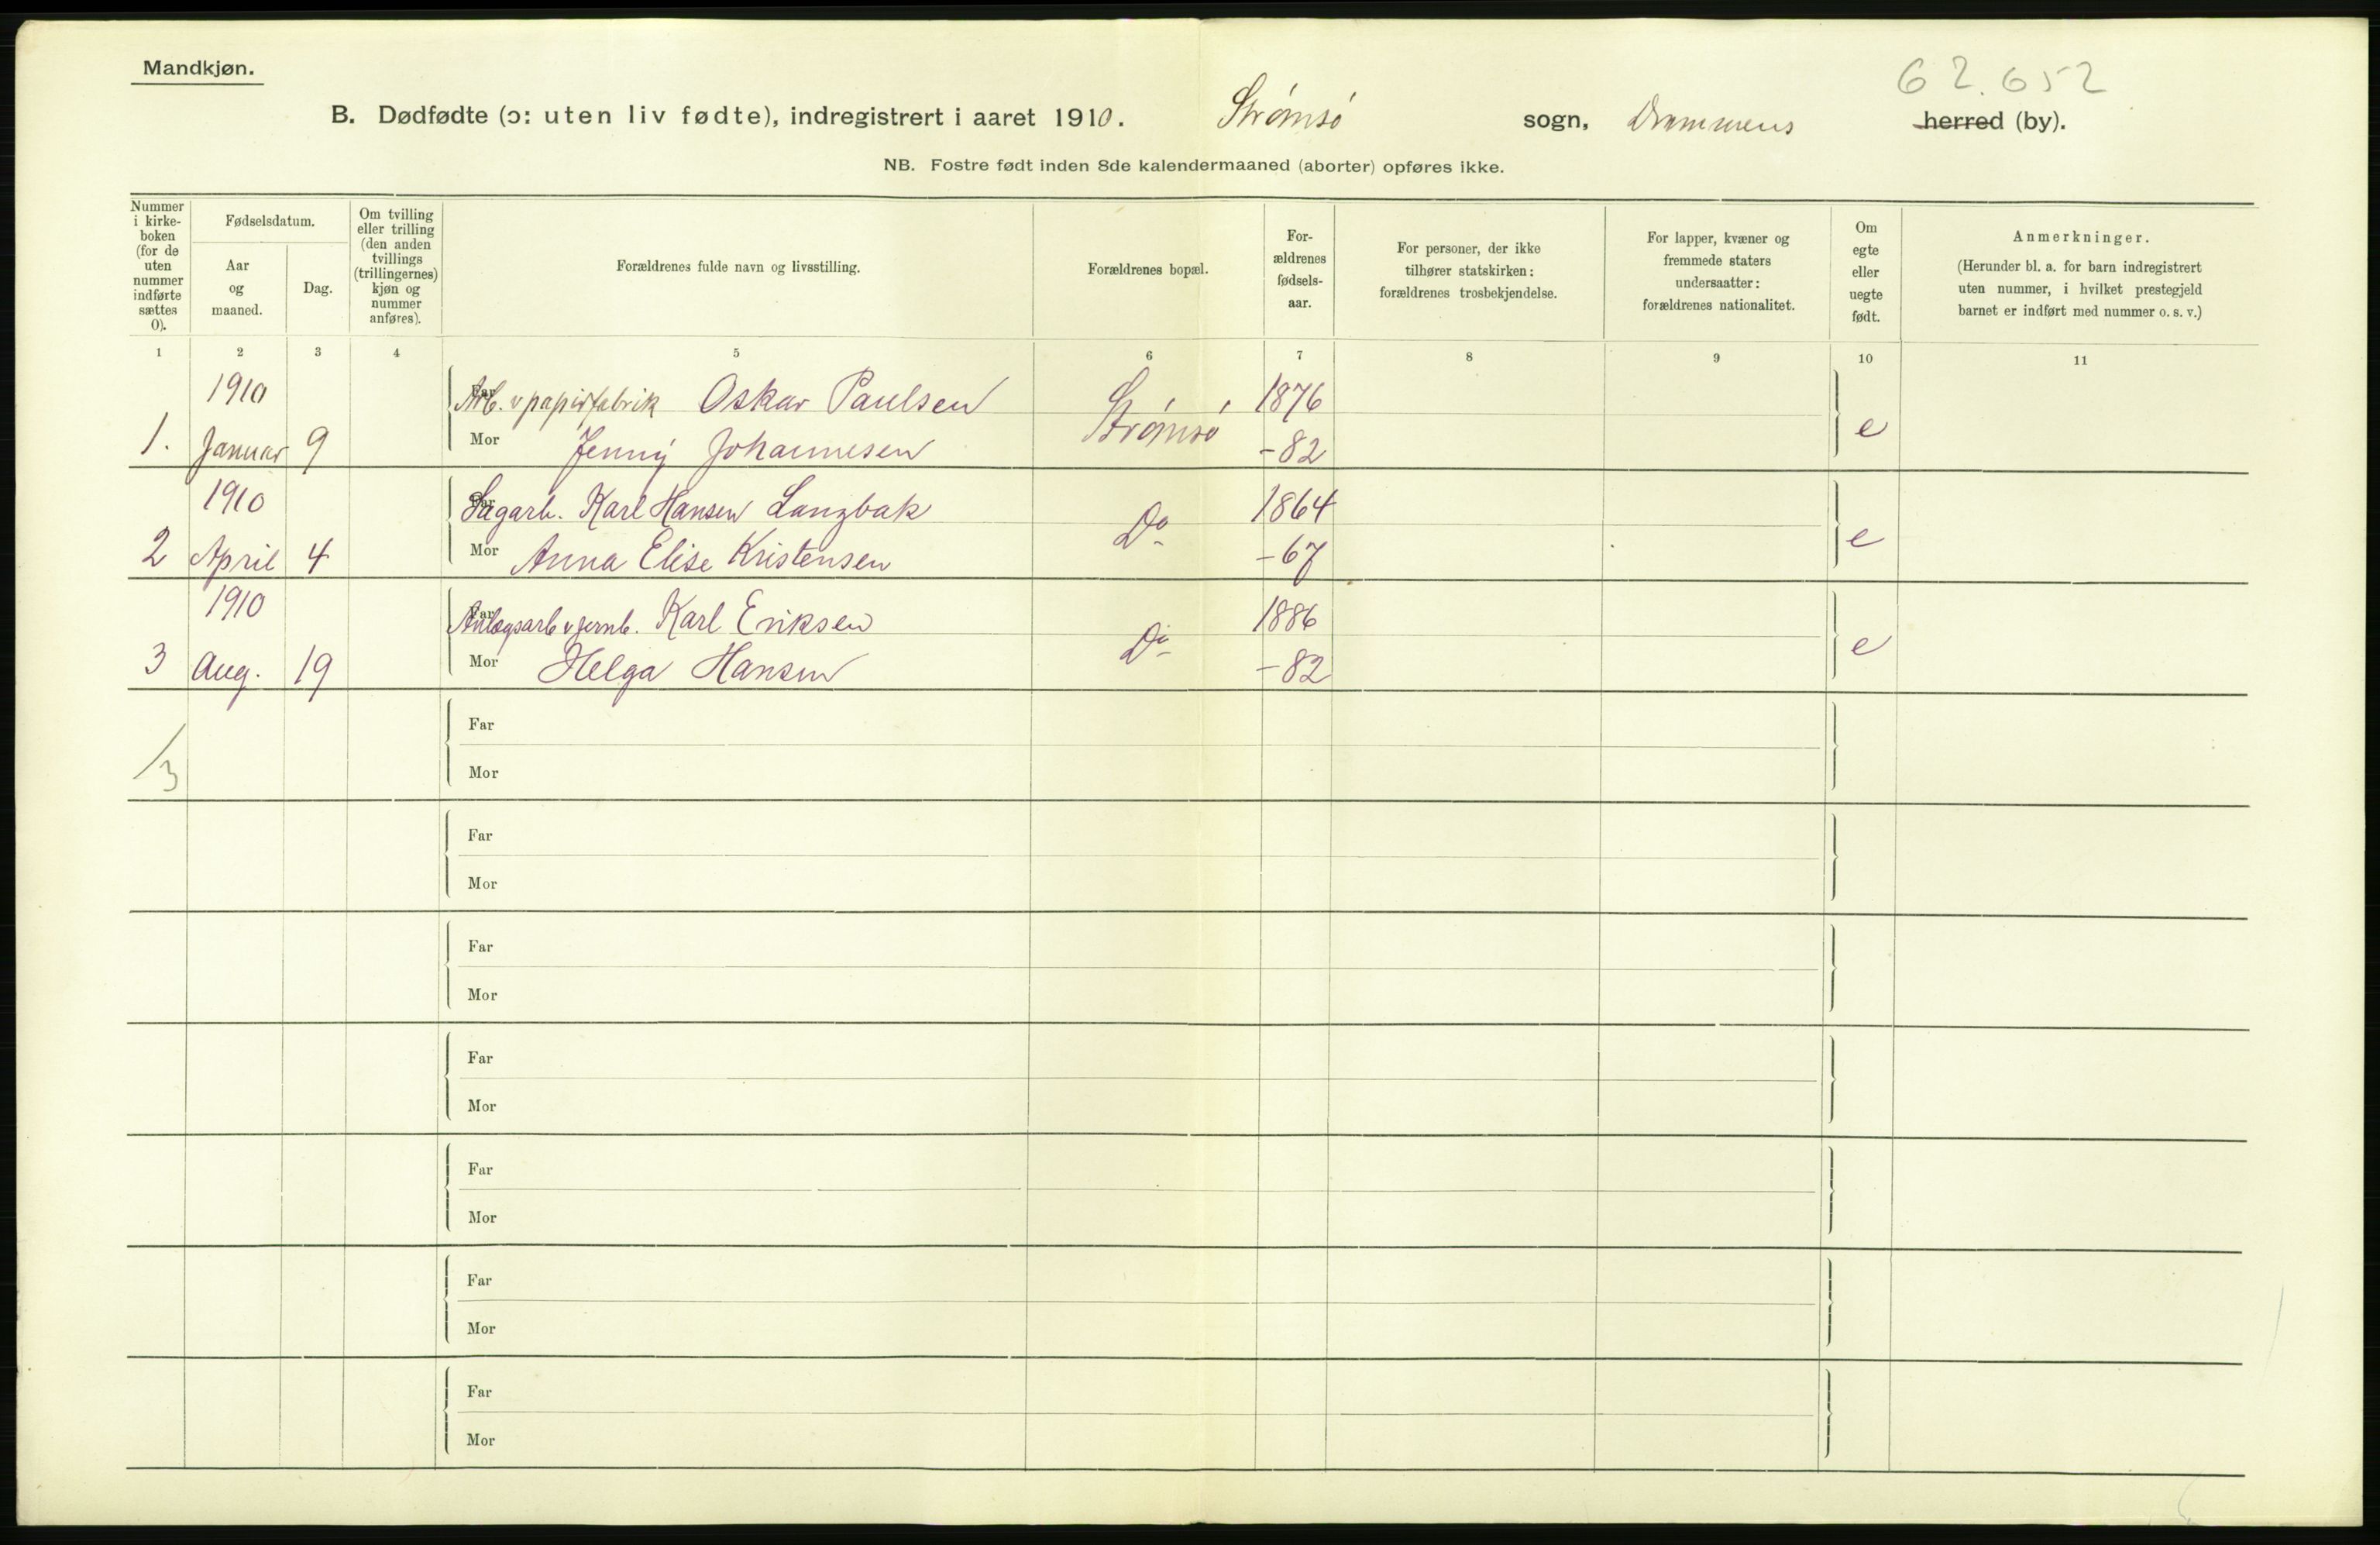 Mandkjøn.
62.652
B. Dødfødte (ɔ: uten liv fødte), indregistrert i aaret 1910. Strømsø sogn, Drammens herred (by).
NB. Fostre født inden 8de kalendermaaned (aborter) opføres ikke.
Nummer i kirke-boken (for de uten nummer indførte sættes 0).
Fødselsdatum.
Aar og maaned.
Dag.
Om tvilling eller trilling (den anden tvillings (trillingernes) kjøn og nummer anføres).
Forældrenes fulde navn og livsstilling.
Forældrenes bopæl.
For-ældrenes fødsels-aar.
For personer, der ikke tilhører statskirken: forældrenes trosbekjendelse.
For lapper, kvæner og fremmede staters undersaatter: forældrenes nationalitet.
Om egte eller uegte født.
Anmerkninger.
(Herunder bl. a. for barn indregistrert uten nummer, i hvilket prestegjeld barnet er indført med nummer o. s. v.)
1 2 3 4 5 6 7 8 9 10 11
1910 Far Arb. v papirfabrik Oskar Paulsen Strømsø 1876
1. Januar 9 Mor Jenny Johannesen -82 e
1910 Far Sagarb. Karl Hansen Langbak Do 1864
2 April 4 Mor Anna Elise Kristensen -67 e
1910 Far Anlægsarb v jernb. Karl Eriksen Do 1886
3 Aug. 19 Mor Helga Hansen -82 e
Far
3 Mor
Far
Mor
Far
Mor
Far
Mor
Far
Mor
Far
Mor
Far
Mor